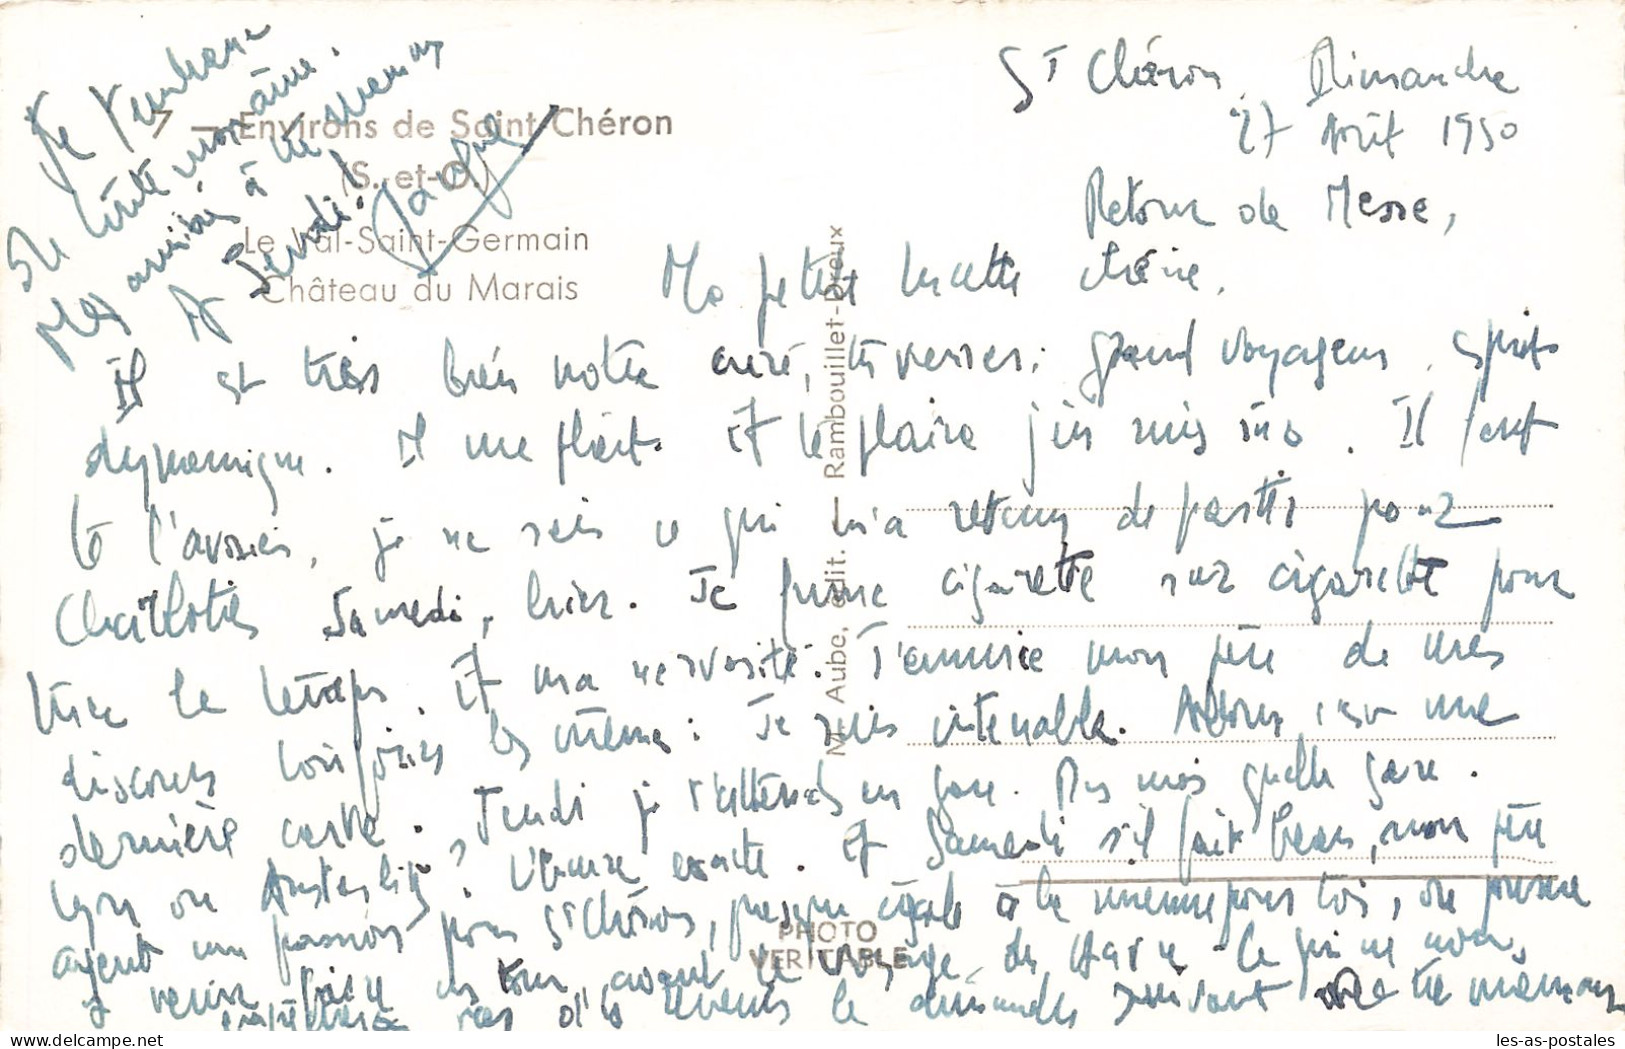 St Chéron, Dimanche
27 Août 1950
Retour de Messe,
Ma petite chérie,
Il est très bien notre curé, tu verras ; grand voyageur, esprit
dynamique. Il me plait. Et te plaira j'en suis sûr. Il faut
te l'avouer, je ne sais ce qui m'a retenu de partir pour
Samedi, hier. Je fume cigarette sur cigarette pour
tuer le temps. Et ma nervosité. J'ennuie mon père de mes
discours toujours les mêmes : Je suis intenable. Allons c'est une
dernière carte. Jeudi je t'attends en gare. Dis moi quelle gare.
Lyon ou Austerlitz ? L'heure exacte. Et Samedi s'il fait beau, mon père
ayant une passion pour St Chéron, presque égale à la mienne pour toi, on pourra
y venir faire un tour, avant le voyage de
le dimanche suivant
Je t'embrasse
ma toute
Mes amitiés à ta maman
A Jeudi!
Jacques
7 — Environs de Saint-Chéron
(S.-et-O.)
Le Val-Saint-Germain
Château du Marais
M. Aube, édit. — Rambouillet-Dreux
PHOTO
VERITABLE
les-as-postales